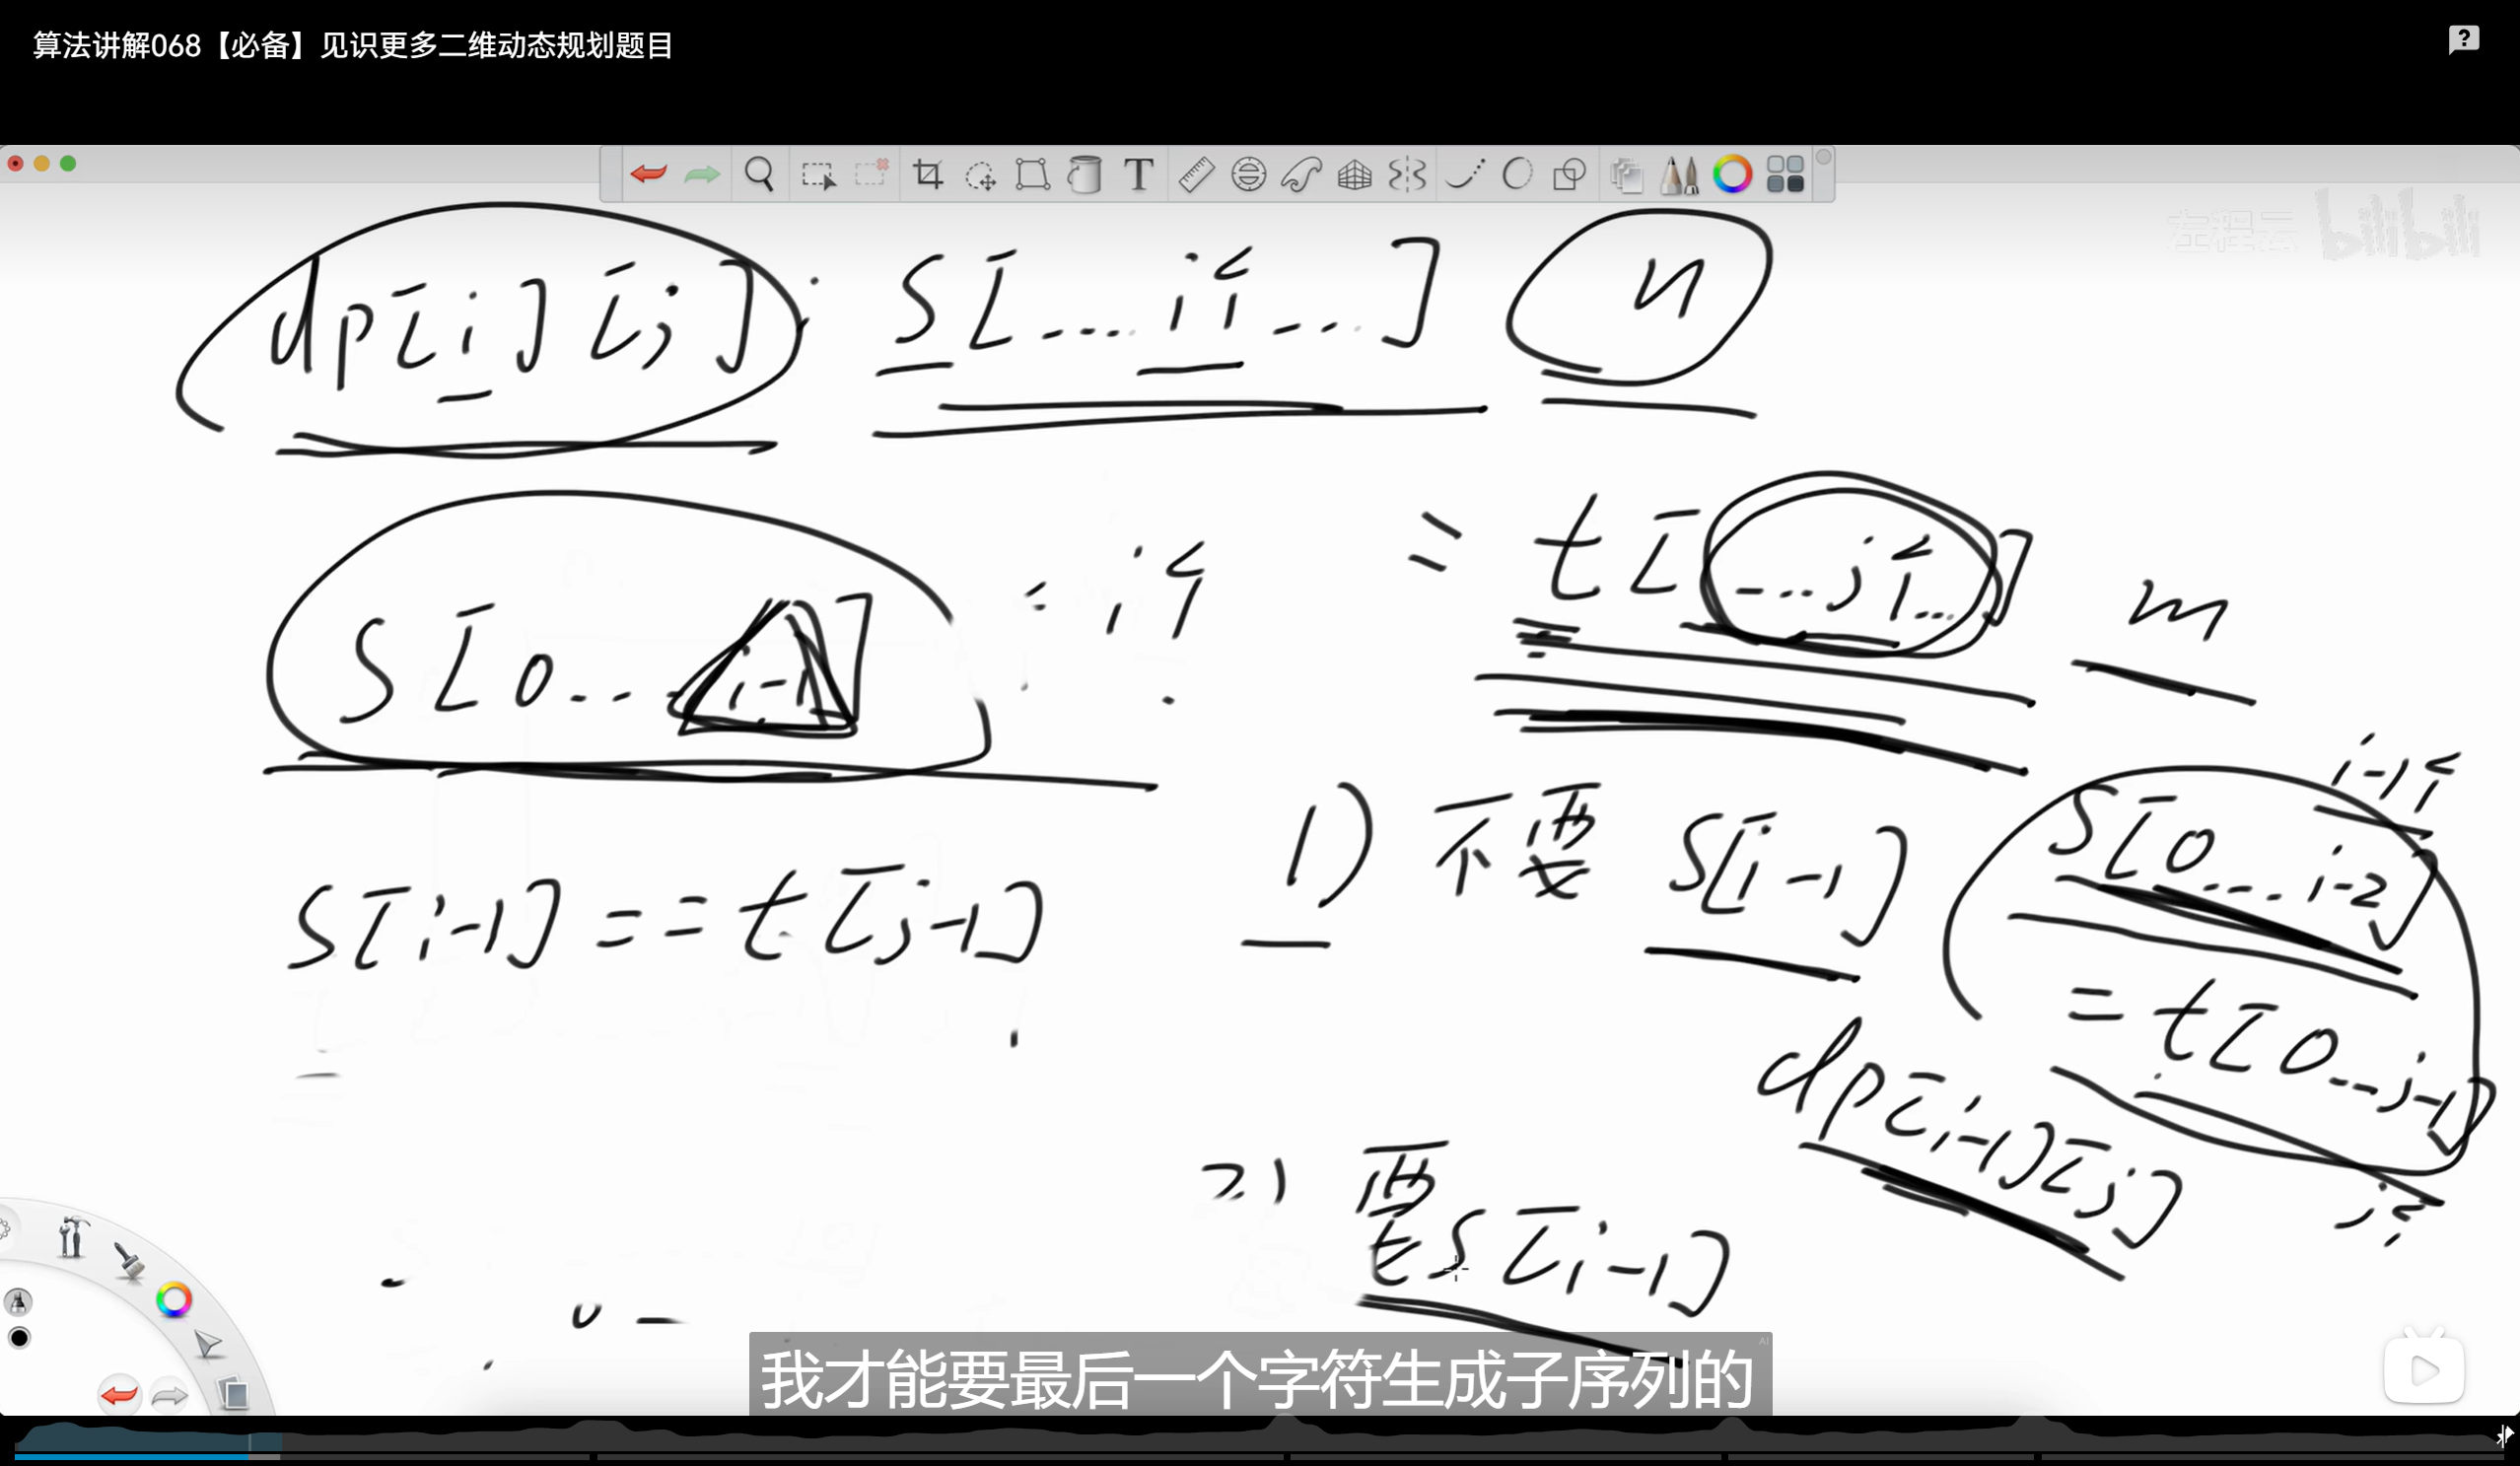 算法讲解068【必备】见识更多二维动态规划题目
左程云 bilibili
dp[i][j]: S[....i个...] n
= t[...j个...] m
S[0...i-1] : i个
i-1个
S[i-1] == t[j-1]
1) 不要 S[i-1]
S[0....i-2]
= t[0...j-1]
dp[i-1][j]
j个
2) 要
S[i-1]
我才能要最后一个字符生成子序列的
AI